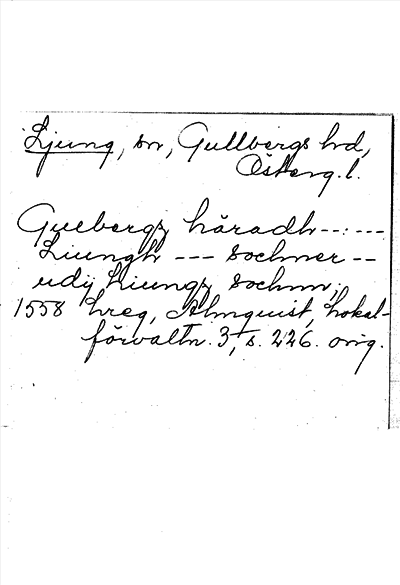 Ljung, sn, Gullbergs hd,
Österg. l.
Guebergz häradh --:---
Liungh --- sochner --
udij Liungz sochnn;
1558 hreg, Almquist, Lokal-
förvaltn. 3, s. 226. orig.